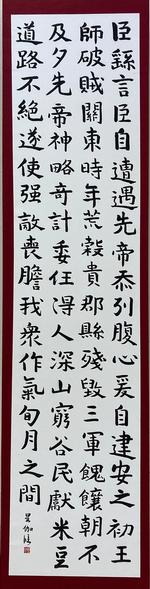 臣繇言臣自遭遇先帝忝列腹心爰自建安之初王
師破賊關東時年荒穀貴郡縣殘毀三軍餽饟朝不
及夕先帝神略奇計委任得人深山窮谷民獻米豆
道路不絕遂使强敵喪膽我衆作氣旬月之間